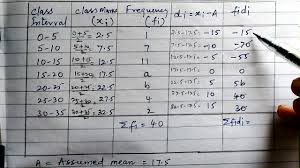 Class Interval | Class Marks (xi) | Frequency (fi) | di = xi - A | fidi
0-5 | 0+5/2 = 2.5 | 1 | 2.5-17.5 = -15 | -15
5-10 | 5+10/2 = 7.5 | 7 | 7.5-17.5 = -10 | -70
10-15 | 10+15/2 = 12.5 | 11 | 12.5-17.5 = -5 | -55
15-20 | 15+20/2 = 17.5 | a | 17.5-17.5 = 0 | 0
20-25 | = 22.5 | b | 22.5-17.5 = 5 | 5b
25-30 | = 27.5 | | 27.5-17.5 = 10 |
30-35 | = 32.5 | 2 | 32.5-17.5 = 15 | 30
Σfi = 40 | Σfidi =
A = Assumed mean = 17.5